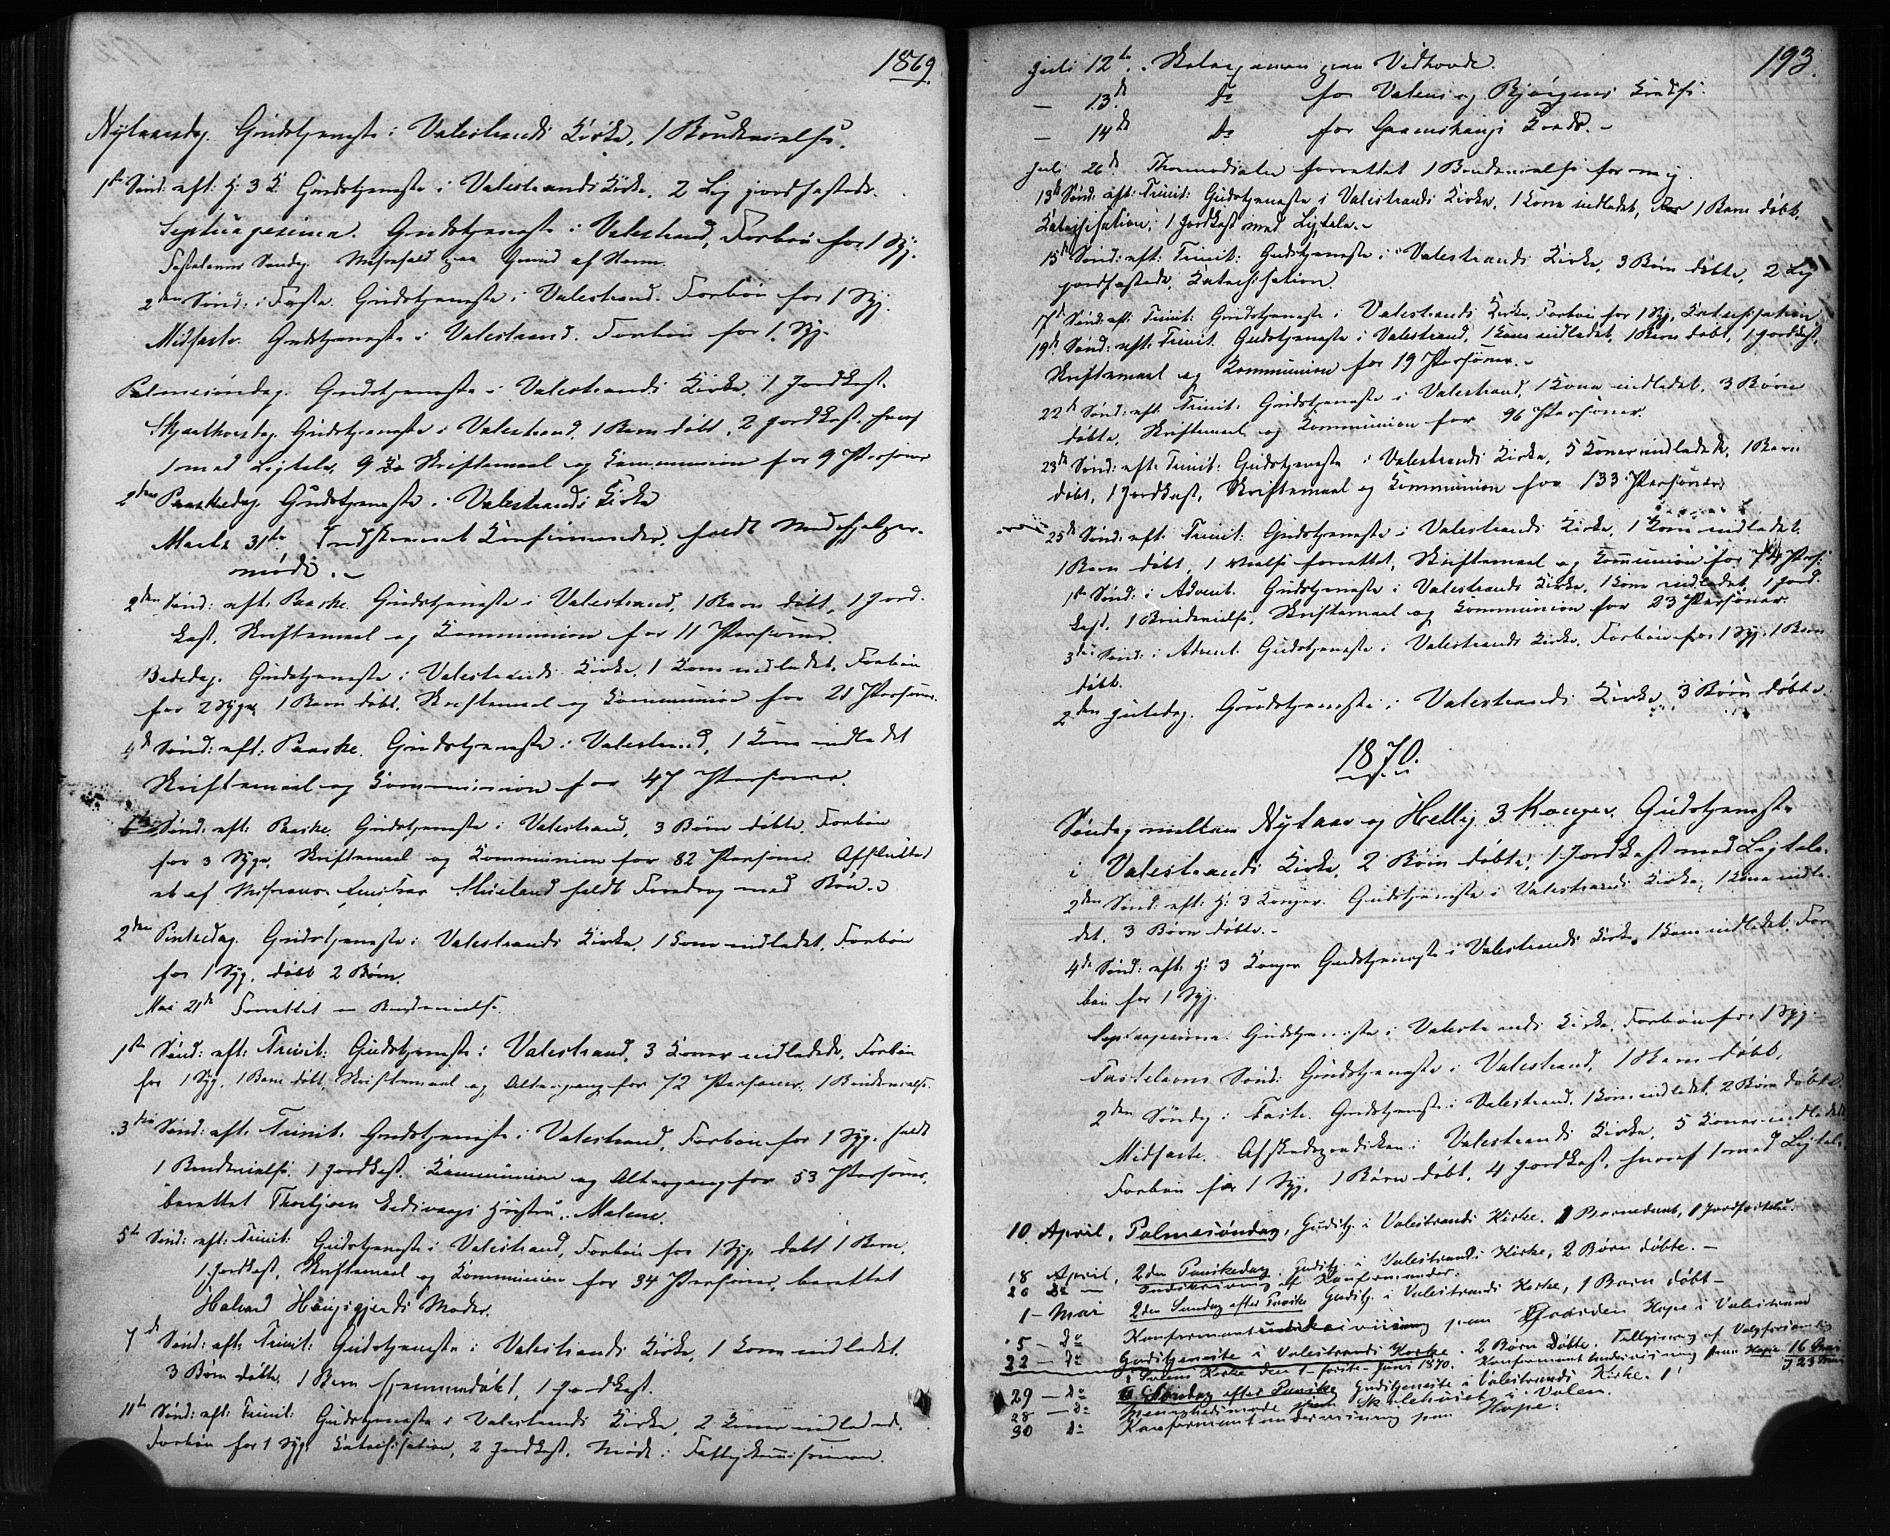 1869.
Nytaarsdag. Gudstjeneste i Valestrands Kirke, 1 Brudevielse.
1ste Sønd: eft: H: 3 K: Gudstjeneste i Valestrands Kirke. 2 Lig jordfæstede.
Septuagesima. Gudstjeneste i Valestrand, Forbøn for 1 Syg.
Fastelavns Søndag. Messefald paa Grund af Storm.
2den Sønd: i Faste. Gudstjeneste i Valestrand. Forbøn for 1 Syg.
Midfaste. Gudstjeneste i Valestrand. Forbøn for 1 Syg.
Palmesøndag. Gudstjeneste i Valestrands Kirke, 1 Jordkast.
Skjærthorsdag. Gudstjeneste i Valestrand, 1 Barn døbt, 2 Jordkast, hvoraf
1 med Ligtale, Skriftemaal og Communion for 9 Personer
2den Paaskedag. Gudstjeneste i Valestrands Kirke
Marts 31te. Indskrevet Confirmander, holdt
møde.
2den Sønd: eft: Paaske. Gudstjeneste i Valestrand, 1 Barn døbt, 1 Jord-
kast, Skriftemaal og Communion for 11 Personer.
Bededag. Gudstjeneste i Valestrands Kirke, 1 Kone indledet, Forbøn
for 2 Syge, 1 Barn døbt, Skriftemaal og Communion for 21 Personer.
4de Sønd: eft: Paaske. Gudstjeneste i Valestrand, 1 Kone indledet
Skriftemaal og Communion for 47 Personer.
6te Sønd: eft: Paaske. Gudstjeneste i Valestrand, 3 Børn døbte, Forbøn
for 3 Syge, Skriftemaal og Communion for 82 Personer. Afsluttedes
med Bøn.
2den Pintsedag. Gudstjeneste i Valestrands Kirke, 1 Kone indledet, Forbøn
for 1 Syg, døbt 2 Børn.
Mai 21de Forrettet en Brudevielse.
1ste Sønd: eft: Trinit: Gudstjeneste i Valestrand, 3 Koner indledede, Forbøn
for 1 Syg, 1 Barn døbt, Skriftemaal og Altergang for 72 Personer, 1 Brudevielse.
3die Sønd: eft: Trinit: Gudstjeneste i Valestrand, Forbøn for 1 Syg, holdt
1 Brudevielse, 1 Jordkast, Communion og Altergang for 53 Personer,
berettet Thorbjørn Hustru, Malene.
5te Sønd: eft: Trinit: Gudstjeneste i Valestrand, Forbøn for 1 Syg, døbt 1 Barn,
1 Jordkast, Skriftemaal og Communion for 34 Personer, berettet
Halvard Moder.
7de Sønd: eft: Trinit: Gudstjeneste i Valestrands Kirke, 1 Kone indledet.
3 Børn døbte, 1 Barn hjemmedøbt, 1 Jordkast.
11te Sønd: eft: Trinit: Gudstjeneste i Valestrands Kirke, 2 Koner indledede.
Forbøn for 1 Syg, Catechisation, 2 Jordkast. Møde i Fattigkommissionen.
193.
Juli 12te. Skoleexamen paa Vidhovde.
— 13de Do for Valens og Bjørgenes Kreds.
— 14de Do for Kreds. —
Juli 26de forrettet 1 Brudevielse for mig.
13de Sønd: eft: Trinit: Gudstjeneste i Valestrands Kirke, 1 Kone indledet, 1 Barn døbt,
Catechisation, 1 Jordkast med Ligtale. —
15de Sønd: eft: Trinit: Gudstjeneste i Valestrands Kirke, 3 Børn døbte, 2 Lig
jordfæstede, Catechisation.
17de Sønd: eft: Trinit: Gudstjeneste i Valestrands Kirke, Forbøn for 1 Syg, Catechisation.
19de Sønd: eft: Trinit: Gudstjeneste i Valestrand, 1 Kone indledet, 1 Barn døbt, 1 Jordkast,
Skriftemaal og Communion for 19 Personer. —
22de Sønd: eft: Trinit: Gudstjeneste i Valestrand, 1 Kone indledet, 3 Børn
døbte, Skriftemaal og Communion for 96 Personer.
23de Sønd: eft: Trinit: Gudstjeneste i Valestrands Kirke, 5 Koner indledede, 1 Barn
døbt, 1 Jordkast, Skriftemaal og Communion for 133 Personer.
25de Sønd: eft: Trinit: Gudstjeneste i Valestrands Kirke, 1 Kone indledet.
1 Barn døbt, 1 Vielse forrettet, Skriftemaal og Communion for 74 Pers:
1ste Sønd: i Advent. Gudstjeneste i Valestrands Kirke, 1 Kone indledet, 1 Jord-
kast, 1 Brudevielse, Skriftemaal og Communion for 23 Personer.
3die Sønd: i Advent. Gudstjeneste i Valestrands Kirke. Forbøn for 1 Syg. 1 Barn
døbt.
2den Juledag. Gudstjeneste i Valestrands Kirke, 3 Børn døbte.
1870.
Søndag mellem Nytaar og Hellig 3 Konger. Gudstjeneste
i Valestrands Kirke, 2 Børn døbte, 1 Jordkast med Ligtale.
2den Sønd: eft: H: 3 Konger. Gudstjeneste i Valestrands Kirke, 1 Kone indle-
det, 3 Børn døbte. —
4de Sønd: eft: H: 3 Konger Gudstjeneste i Valestrands Kirke, 1 Kone indledet, For-
bøn for 1 Syg.
Septuagesima. Gudstjeneste i Valestrands Kirke, Forbøn for 1 Syg.
Fastelavns Sønd: Gudstjeneste i Valestrand, 1 Barn døbt,
2den Søndag i Faste. Gudstjeneste i Valestrand, 1 Kone indledet, 2 Børn døbte.
Midfaste. Afskedsprædiken i Valestrands Kirke, 5 Koner indledede
Forbøn for 1 Syg, 1 Barn døbt, 4 Jordkast, hvoraf 1 med Ligtale.
10 April, Palmesøndag, Gudstj. i Valestrands Kirke. 1 Barnedaab, 1 Jordfæstelse.
18 April, 2den Paaskedag. Gudstj. i Valestrands Kirke, 2 Børn døbte. —
20 Do — Indskrivning af Konfirmander.
1 — Mai 2den Søndag efter Paaske Gudstj. i Valestrands Kirke, 1 Barn døbt —
5 — Do Konfirmantundervisning paa Gaarden Hope i Valestrand
22 — Do Gudstjeneste i Valestrands Kirke. 2 Børn Døbte.
i Kirke den 1ste Juni 1870. Konfirmant Undervisning paa Hope 16 Mai
23 Mai
29 — Do Søndag efter Paaske Gudstjeneste i Valestrands Kirke.
28 — Do paa Skolehuset i Valen.
30 Do Konfirmantundervisning paa Hope.